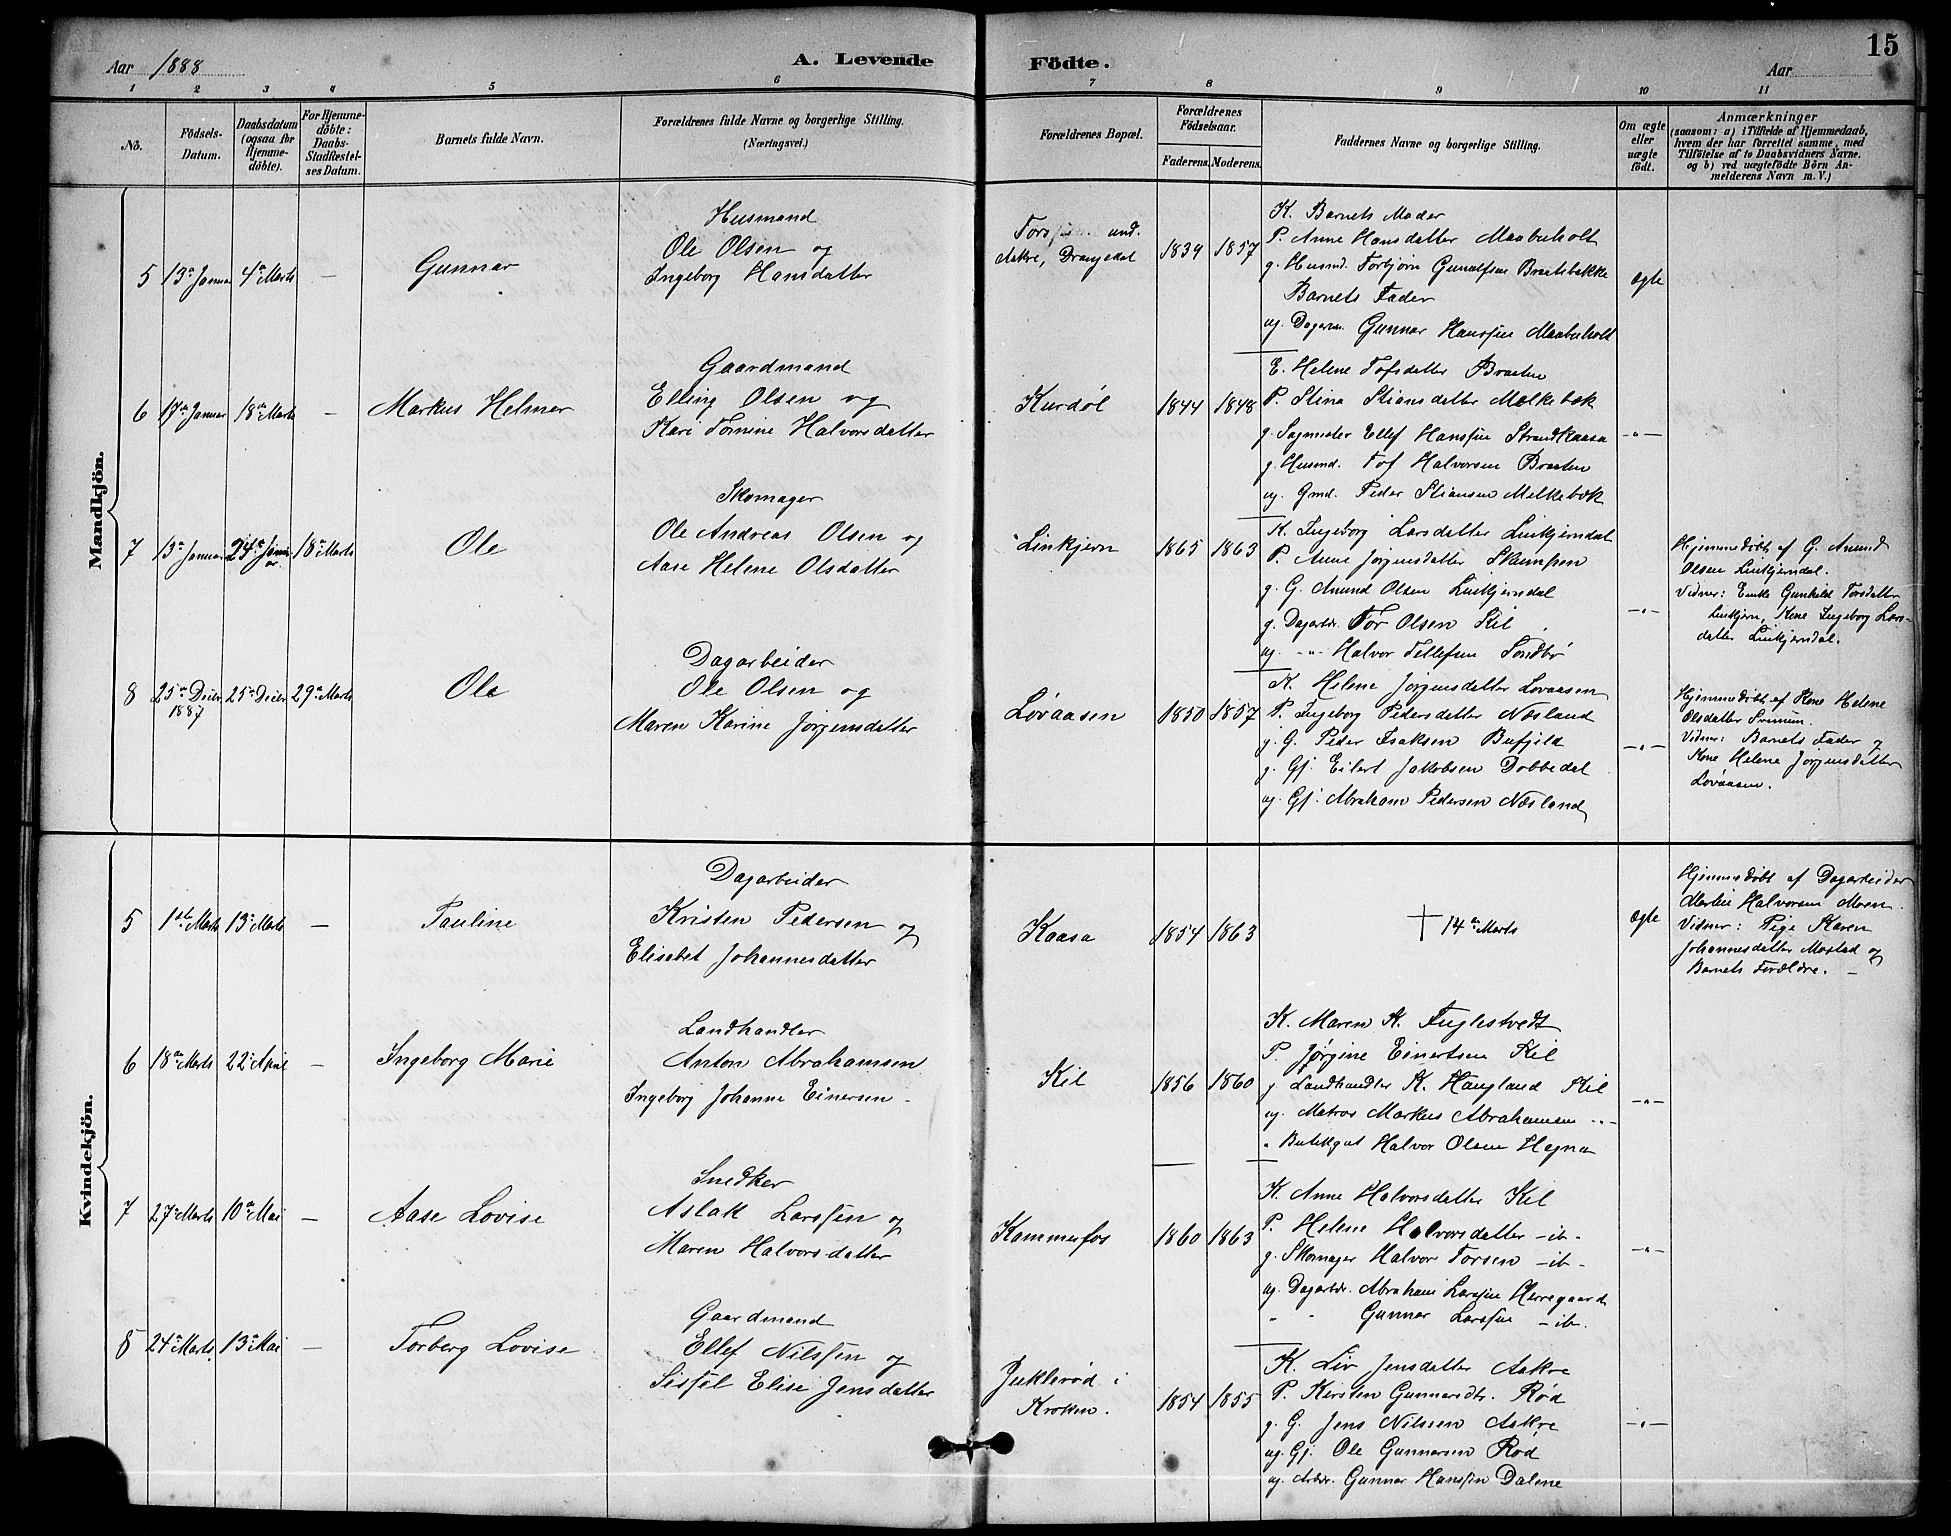 15
Aar 1888
A. Levende Födte.
Aar
1 2 3 4 5 6 7 8 9 10 11
Nö.
Födsels-Datum.
Daabsdatum (ogsaa for Hjemme-döbte).
For Hjemme-döbte: Daabs-Stadfæstel-ses Datum.
Barnets fulde Navn.
Forældrenes fulde Navne og borgerlige Stilling. (Næringsvei.)
Forældrenes Bopæl.
Forældrenes Födselsaar.
Faderens. Moderens.
Faddernes Navne og borgerlige Stilling.
Om ægte eller uægte födt.
Anmærkninger
(saasom: a) i Tilfælde af Hjemmedaab,
hvem der har forrettet samme, med
Tilföielse af to Daabsvidners Navne.
og b) ved uægtefödte Börn An-
melderens Navn m. V.)
Mandkjön.
5 13de Januar 4de Marts — Gunnar
Husmand
Ole Olsen og
Ingeborg Hansdatter
und.
Aakre, Drangedal
1839 1857
K. Barnets Moder
P. Anne Hansdatter Maabuholt
g. Husmd. Torbjørn Gunulfsen Braatebakke
Barnets Fader
ug. Dagarb. Gunnar Hanssen Maabuholt
ægte
6 17de Januar 18de Marts — Markus Helmer
Gaardmand
Elling Olsen og
Kari Tomine Halvorsdatter
Kurdøl
1844 1848
E. Helene Tofsdatter Braaten
P. Stina Stiansdatter Melkebæk
g. Sagmester Ellef Hanssen Strandkaasa
g. Husmd. Tof Halvorsen Braaten
ug. Gmd. Peder Stiansen Melkebæk
—"—
7 13de Januar 24de Januar 18de Marts Ole
Skomager
Ole Andreas Olsen og
Aase Helene Olsdatter
Linkjern
1865 1863
K. Ingeborg Larsdatter Linkjerndal
P. Anne Jørgensdatter Skumpen
g. G. Anund Olsen Linkjerndal
g. Dagarbr. Tor Olsen Kil
ug. -"- Halvor Tellefsen Tondbø
—"—
Hjemmedøbt af G. Anund
Olsen Linkjerndal.
Vidner: Enke Gunhild Torsdatter
Linkjern, Kone Ingeborg Lars-
datter Linkjerndal.
8 25de Decbr. 1887 25de Decbr 29de Marts Ole
Dagarbeider
Ole Olsen og
Maren Karine Jørgensdatter
Løvaasen
1850 1857
K. Helene Jørgensdatter Lovaasen
P. Ingeborg Pedersdatter Næsland
g. G. Peder Isaksen Bufjeld
g. Gj. Eilert Jakobsen Dobbedal
ug. Gj. Abraham Pedersen Næsland
—"—
Hjemmedøbt af Kone Helene
Olsdatter
Vidner: Barnets Fader og
Kone Helene Jørgensdatter
Lovaasen.
Kvindekjön.
5 1ste Marts 13de Marts — Pauline
Dagarbeider
Kristen Pedersen og
Elisabet Johannesdatter
Kaasa
1854 1863
† 14de Marts
ægte
Hjemmedøbt af Dagarbeider
Martin Halvorsen Moen.
Vidner: Pige Karen
Johannesdatter Mostad og
Barnets Forældre. —
6 18de Marts 22de April — Ingeborg Marie
Landhandler
Anton Abrahamsen
Ingeborg Johanne Einersen -
Kil
1856 1860
K. Maren K. Fuglestvedt
P. Jørgine Einertsen Kil
g Landhandler K. Haugland Kil
ug. Matros Markus Abrahamsen -"-
" Butikgut Halvor Olsen Hegna
—"—
7 27de Marts 10de Mai — Aase Lovise
Snedker
Aslak Larssen og
Maren Halvorsdatter
Kammerfos
1860 1863
K. Anne Halvorsdatter Kil
P. Helene Halvorsdatter -ib-
g. Skomager Halvor Torsen -ib-
ug. Dagarbr. Abraham Larssen Herregaard
" " Gunnar Larssen -ib.
—"—
8 24de Marts 13de Mai — Torberg Lovise
Gaardmand
Ellef Nilssen og
Sissel Elise Jensdatter
Juklerød i
Kroken.
1854 1855
K. Liv Jensdatter Aakre
P. Kirsten Gunnarsdtr. Rød
g. G. Jens Nilssen Aakre
ug. Gj. Ole Gunnarsen Rød
ug. Arbdr. Gunnar Hanssen Dalene
—"—